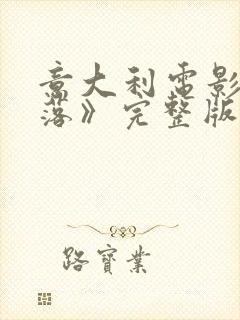 意大利電影
落》完整版
路寶業